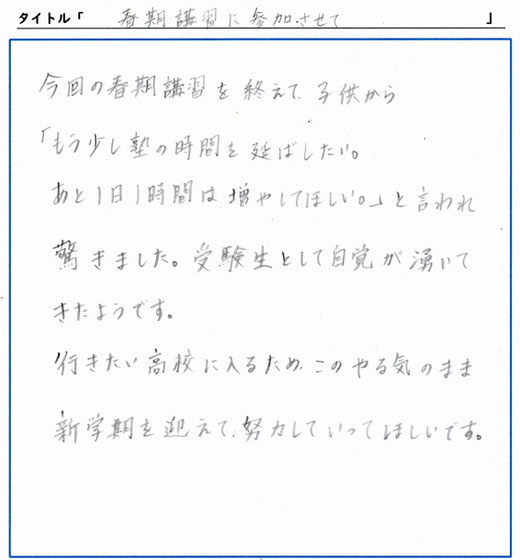 タイトル「 春期講習に参加させて 」
今回の春期講習を終えて、子供から
「もう少し塾の時間を延ばしたい。
あと1日1時間は増やしてほしい。」と言われ
驚きました。受験生として自覚が湧いて
きたようです。
行きたい高校に入るため、このやる気のまま
新学期を迎えて、努力していってほしいです。